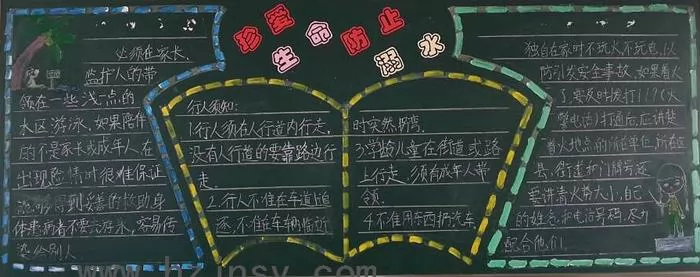 珍爱生命防止
溺水
必须在家长、
监护人的带
领在一些浅一点的
水区游泳,如果陪伴
的不是家长或成年人在
出现险情时很难保证
能够得到妥善的救助身
体患病者不要去游泳,容易传
染给别人
行人须知:
1.行人须在人行道内行走,
没有人行道的要靠路边行
走.
2.行人不准在车道上追
逐.不准在车辆临近
时突然拐弯.
3.学龄儿童在街道或路
上行走.须有成年人带
领.
4.不准用东西扔汽车.
独自在家时不玩火不玩电,以
防引发安全事故.如果着火
了,要及时拨打119(火
警电话)打通后应讲楚
着火地点的所在单位,所在
县、街道和门牌号还
要讲清火势大小,自己
的姓名和电话号码,尽力
配合他们.